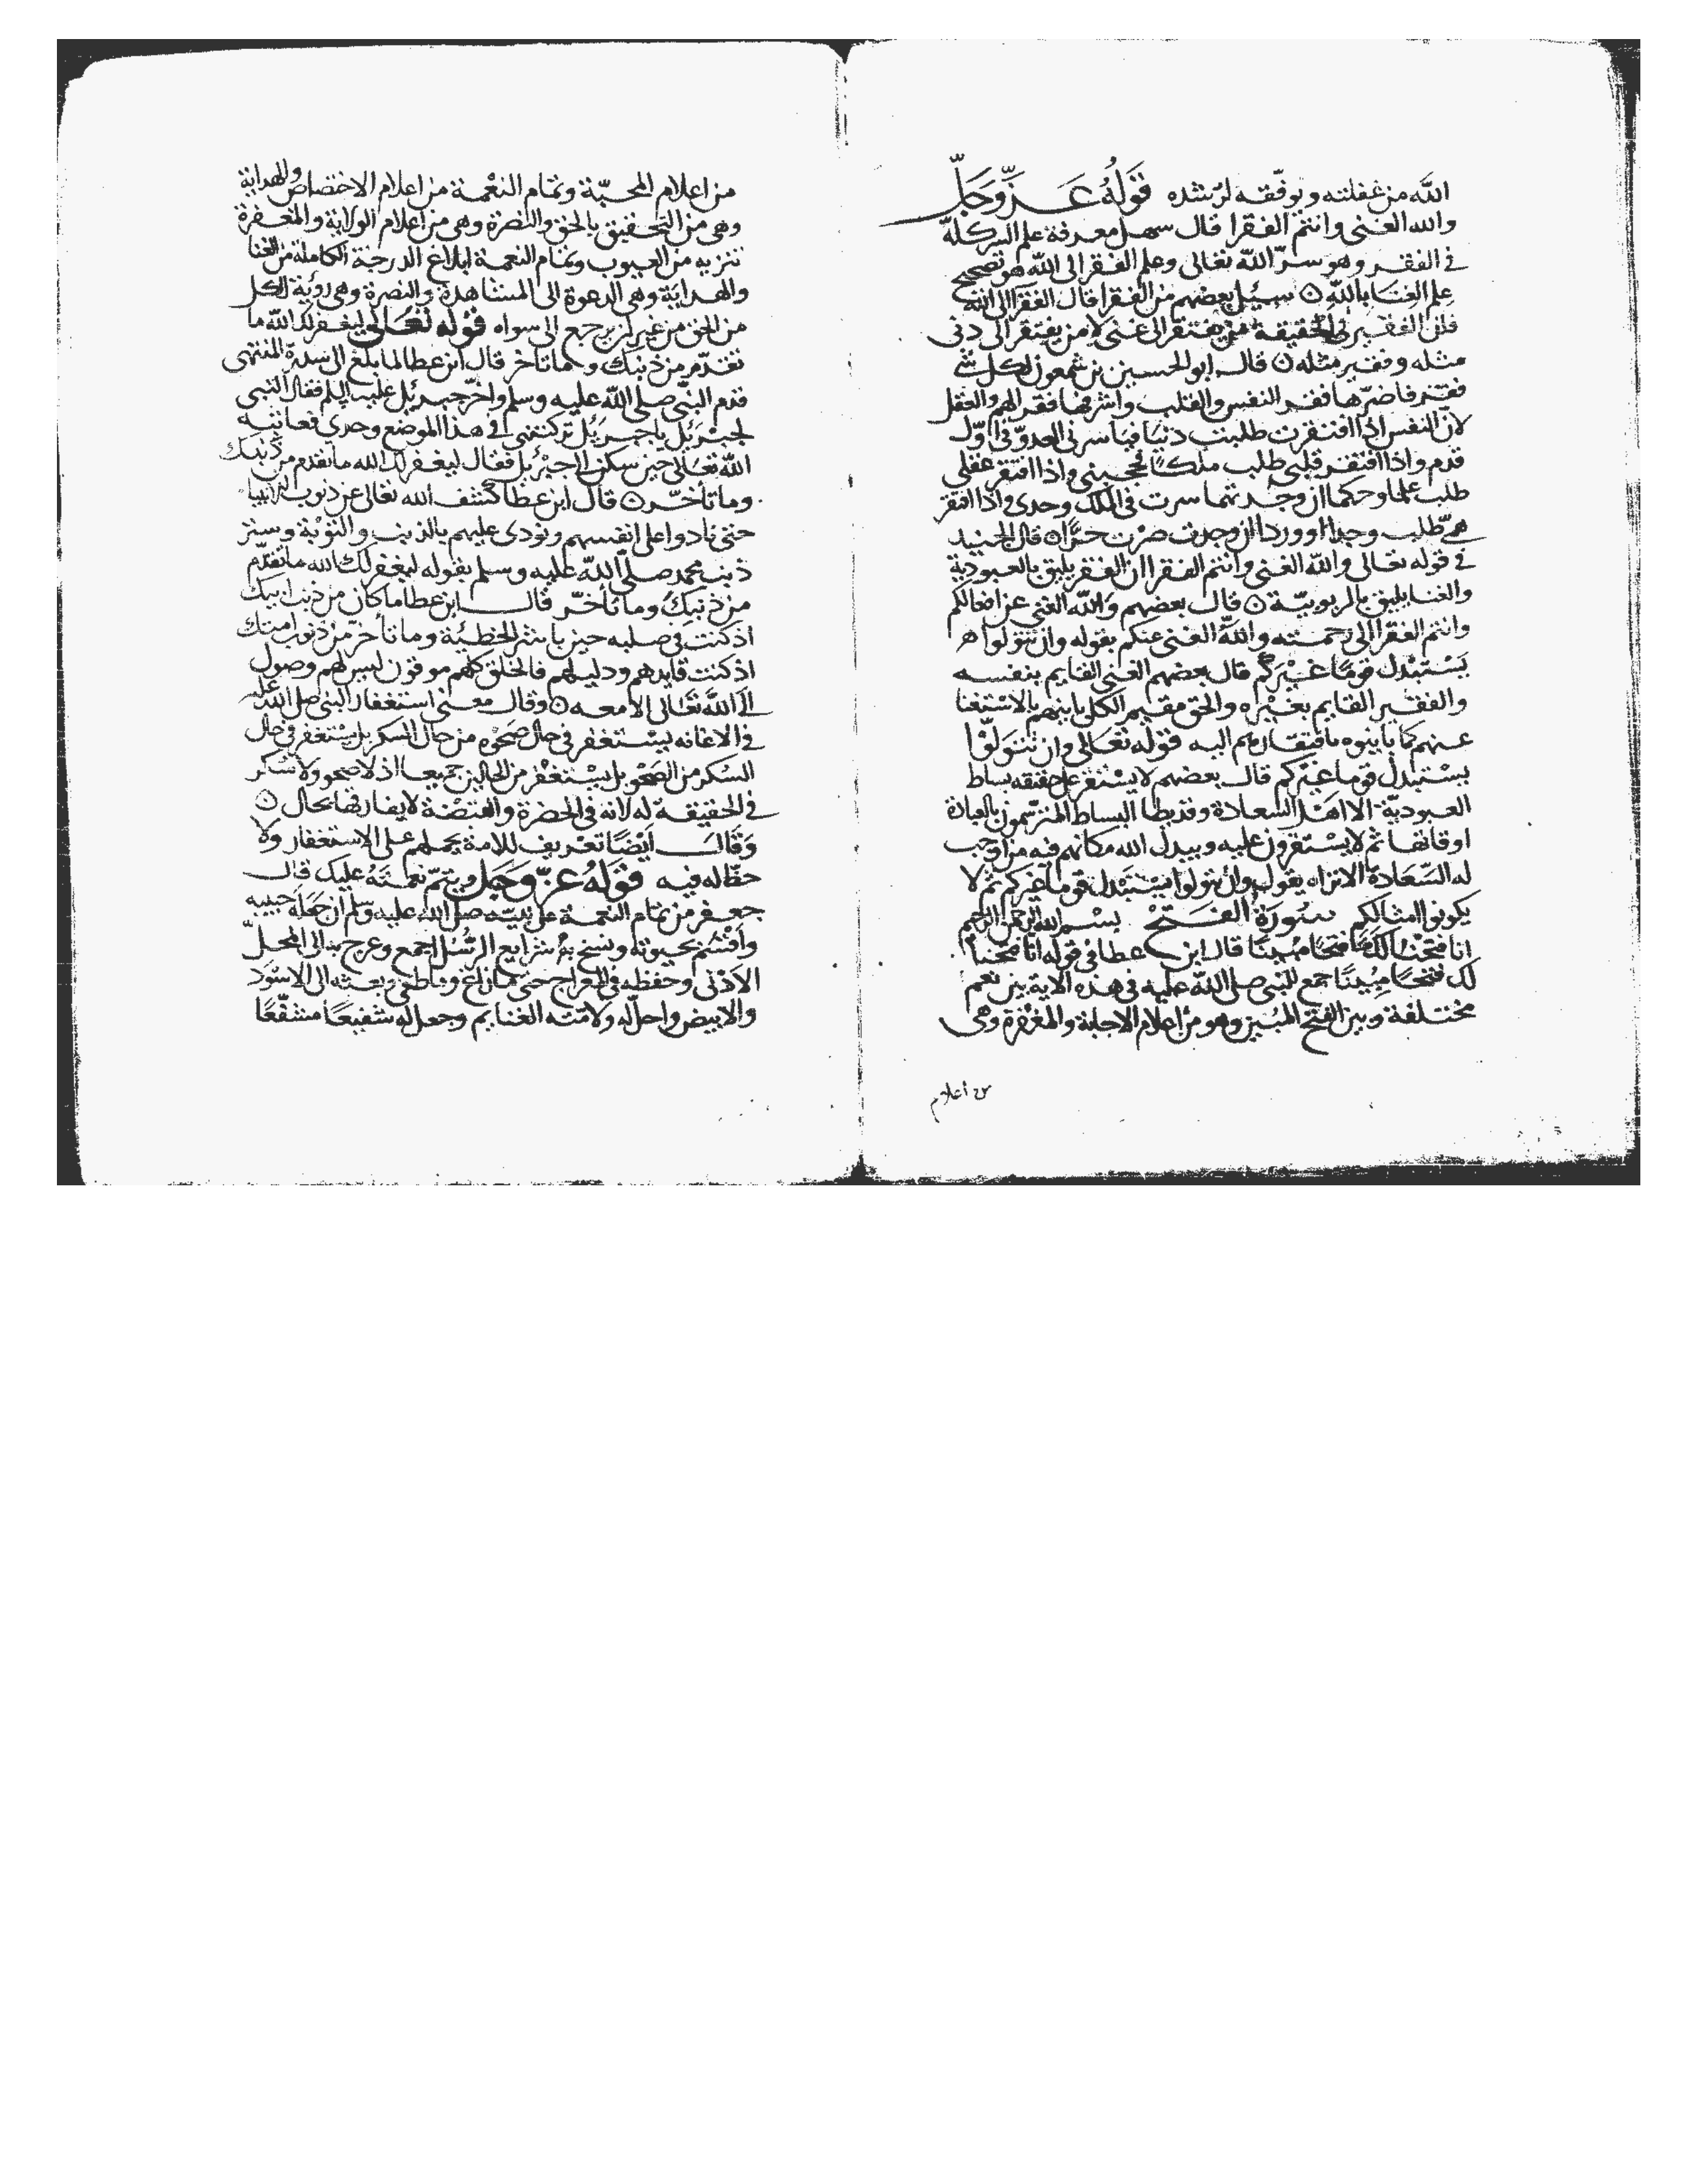 الله من غفلته ويوفقه لرشده قوله عز وجل
والله الغنى وانتم الفقرا قال سهل معرفة علم السر كله
فى الفقر وهو سر الله تعالى وعلم الفقر الى الله هو تصحيح
علم الغنا بالله ه سيل بعضهم من الفقرا قال الفقرا الى الله
فان الفقير فى الحقيقة من يفتقر الى غنى لا من يفتقر الى دنى
مثله وفقير مثله ه قال ابو الحسين بن شمعون لكل شى
فقر فاضرها فقر النفس والقلب واشرفها فقر الهم والعقل
لان النفس اذا افتقرت طلبت دنيا فياسرنى العدو فى اول
قدم واذا افتقر قلبى طلب ملكا فحجبنى واذا افتقر عقلى
طلب علما وحكما ان وجد ثما سرت فى الملك وحدى واذا افتقر
همى طلب وجدا او وردا ان وجدت صرت حرا ه قال الجنيد
فى قوله تعالى والله الغنى وانتم الفقرا ان الفقر يليق بالعبودية
والغنا يليق بالربوبية ه قال بعضهم والله الغنى عن افعالكم
وانتم الفقرا الى رحمته والله الغنى عنكم بقوله وان تتولوا ه
يستبدل قوما غيركم قال بعضهم الغنى القايم بنفسه
والفقير القايم بغيره والحق مقيم الكل باينهم بالاستغنا
عنهم كما باينوه بافتقارهم اليه قوله تعالى وان تتولوا
يستبدل قوما غيركم قال بعضهم لا يستقر على حقيقه بساط
العبودية الا اهل السعادة وقد يطا البساط المترسمون بالعبادة
اوقاتها ثم لا يستقرون عليه ويبدل الله مكانهم فيه من اوجب
له السعادة الا تراه يقول وان تتولوا يستبدل قوما غيركم ثم لا
يكونوا امثالكم سورة الفتح بسم الله الرحمن الرحيم
انا فتحنا لك فتحا مبينا قال ابن عطا فى قوله انا فتحنا
لك فتحا مبينا جمع للنبى صلى الله عليه فى هذه الاية بين نعم
مختلفة وبين الفتح المبين وهو من اعلام الاجابة والمغفرة وهى
من اعلام
من اعلام المحبة وتمام النعمة من اعلام الاختصاص والهداية
وهى من التحقيق بالحق والنصرة وهى من اعلام الولاية والمغفرة
تنزيه من العيوب وتمام النعمة ابلاغ الدرجة الكاملة من الغنا
والهداية وهى الدعوة الى المشاهدة والنصرة وهى رؤية الكل
من الحق من غير ان يرجع الى سواه قوله تعالى ليغفر لك الله ما
تقدم من ذنبك وما تاخر قال ابن عطا لما بلغ الى سدرة المنتهى
قدم النبى صلى الله عليه وسلم واخر جبريل عليه السلم فقال النبى
لجبريل يا جبريل تركتنى فى هذا الموضع وحدى فعاتبه
الله تعالى حين سكن الى جبريل فقال ليغفر لك الله ما تقدم من ذنبك
وما تاخر ه قال ابن عطا كشف الله تعالى عن ذنوب الانبيا
حتى نادوا على انفسهم ونودى عليهم بالذنب والتوبة وستر
ذنب محمد صلى الله عليه وسلم بقوله ليغفر لك الله ما تقدم
من ذنبك وما تأخر قال ابن عطا ما كان من ذنب ابيك
اذ كنت فى صلبه حين باشر الخطيئة وما تأخر من ذنوب امتك
اذ كنت قايدهم ودليلهم فالخلق كلهم موقوفون ليس لهم وصول
الى الله تعالى الا معه ه وقال معنى استغفار النبى صلى الله عليه
فى الاغانه يستغفر فى حال صحوه من حال السكر بل يستغفر فى حال
السكر من الصحو بل يستغفر من الحالين جميعا اذ لا صحو ولا سكر
فى الحقيقة له لانه فى الحضرة والقبضة لا يفارقها بحال ه
وقال ايضا تعريف للامة يحملهم على الاستغفار ولا
حظ له فيه قوله عز وجل ويتم نعمته عليك قال
جعفر من تمام النعمة على نبيه صلى الله عليه وسلم ان جعله حبيبه
واقسم بحيوته ونسخ به شرايع الرسل اجمع وعرج به الى المحل
الادنى وحفظه فى المعراج حتى ما زاغ وما طغى وبعثه الى الاسود
والابيض واحل له ولامته الغنايم وجعل له شفيعا مشفعا